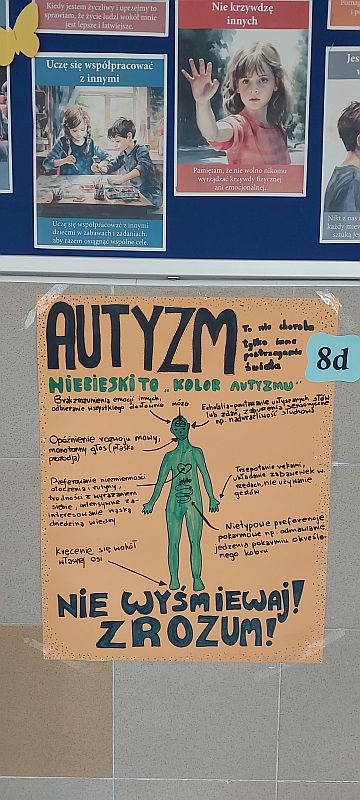 Kiedy jestem życzliwy i uprzejmy to
sprawiam, że życie ludzi wokół mnie
jest lepsze i łatwiejsze.
Nie krzywdzę
innych
Uczę się współpracować
z innymi
Pamiętam, że nie wolno nikomu
wyrządzać krzywdy fizycznej
ani emocjonalnej.
Uczę się współpracować z innymi
dziećmi w zabawach i zadaniach,
aby razem osiągnąć wspólne cele.
AUTYZM
To nie choroba
tylko inne
postrzeganie
świata
8d
NIEBIESKI TO „KOLOR AUTYZMU"
Brak rozumienia emocji innych,
odbieranie wszystkiego dosłownie
MÓZG
Echolalia-powtarzanie usłyszanych słów
lub zdań, zaburzenia sensoryczne
np. nadwrażliwość słuchowa
Opóźnienie rozwoju mowy,
monotonny głos (płaska
Preferowanie niezmienności
otoczenia i rutyny,
trudności z wyrażaniem
siebie, intensywne za-
interesowanie wąską
dziedziną wiedzy
Trzepotanie rękami,
układanie zabawek w
rzędach, nie używanie
gestów
Nietypowe preferencje
pokarmowe np. odmawianie
jedzenia pokarmów określo-
nego koloru
Kręcenie się wokół
własnej osi
NIE WYŚMIEWAJ!
ZROZUM!